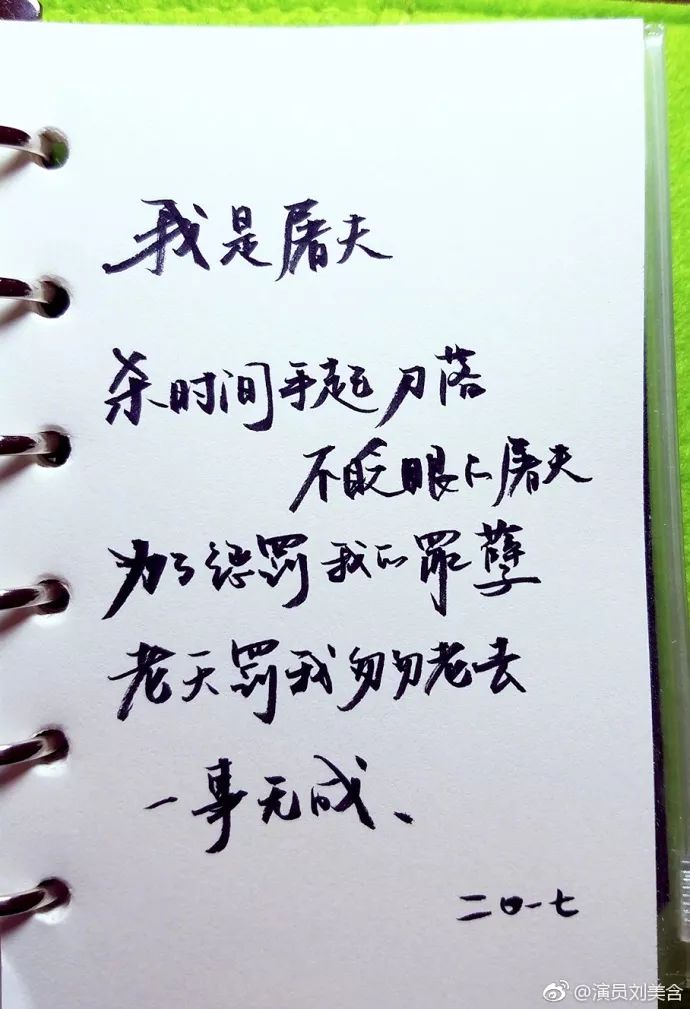 我是屠夫
杀时间手起刀落
不眨眼的屠夫
为了惩罚我的罪孽
老天罚我匆匆老去
一事无成、
二〇一七
@演员刘美含